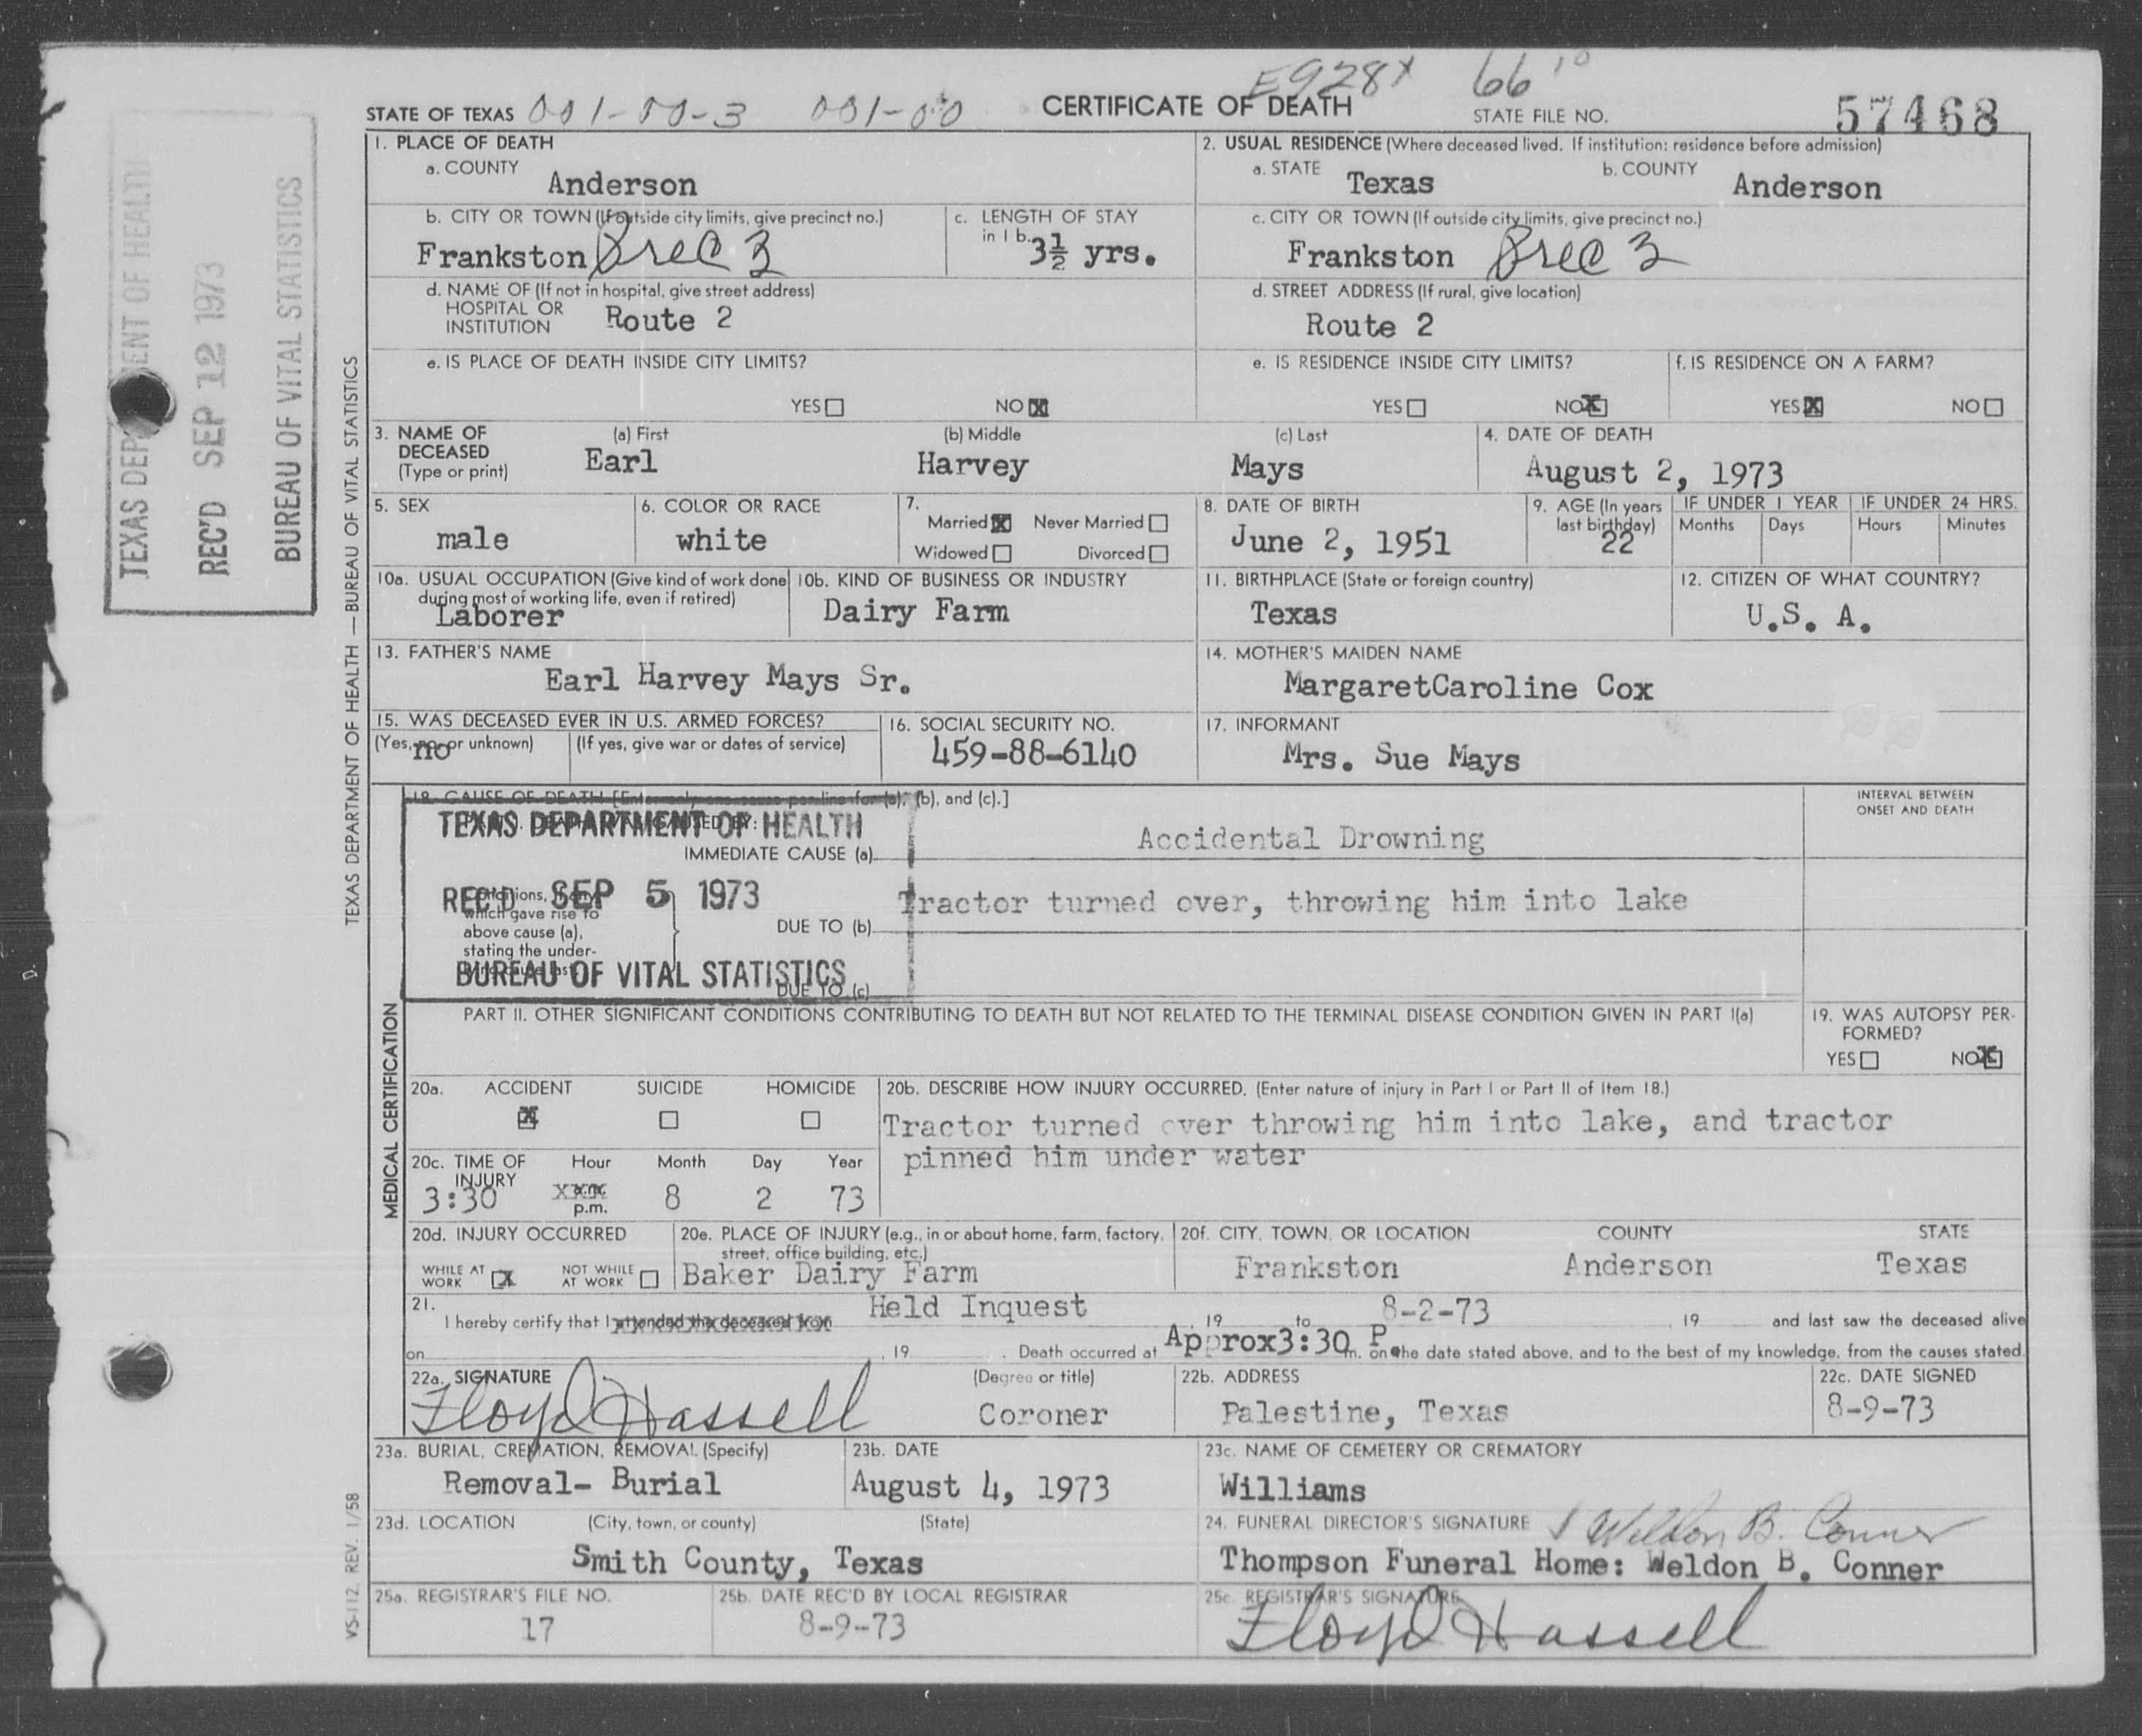 E928X 66 10
STATE OF TEXAS 001-00-3 001-00 CERTIFICATE OF DEATH STATE FILE NO. 57468
1. PLACE OF DEATH
a. COUNTY Anderson
b. CITY OR TOWN (If outside city limits, give precinct no.) c. LENGTH OF STAY in 1 b.
Frankston Prec 3 3½ yrs.
d. NAME OF (If not in hospital, give street address)
HOSPITAL OR
INSTITUTION Route 2
e. IS PLACE OF DEATH INSIDE CITY LIMITS?
YES NO X
2. USUAL RESIDENCE (Where deceased lived. If institution: residence before admission)
a. STATE Texas b. COUNTY Anderson
c. CITY OR TOWN (If outside city limits, give precinct no.)
Frankston Prec 3
d. STREET ADDRESS (If rural, give location)
Route 2
e. IS RESIDENCE INSIDE CITY LIMITS? f. IS RESIDENCE ON A FARM?
YES NO X YES X NO
3. NAME OF DECEASED (Type or print) (a) First (b) Middle (c) Last 4. DATE OF DEATH
Earl Harvey Mays August 2, 1973
5. SEX 6. COLOR OR RACE 7. 8. DATE OF BIRTH 9. AGE (In years last birthday) IF UNDER 1 YEAR IF UNDER 24 HRS.
Married X Never Married Months Days Hours Minutes
male white June 2, 1951 22
Widowed Divorced
10a. USUAL OCCUPATION (Give kind of work done during most of working life, even if retired) 10b. KIND OF BUSINESS OR INDUSTRY 11. BIRTHPLACE (State or foreign country) 12. CITIZEN OF WHAT COUNTRY?
Laborer Dairy Farm Texas U.S. A.
13. FATHER'S NAME 14. MOTHER'S MAIDEN NAME
Earl Harvey Mays Sr. MargaretCaroline Cox
15. WAS DECEASED EVER IN U.S. ARMED FORCES? 16. SOCIAL SECURITY NO. 17. INFORMANT
(Yes, no, or unknown) (If yes, give war or dates of service)
no 459-88-6140 Mrs. Sue Mays
18. CAUSE OF DEATH [Enter only one cause per line for (a), (b), and (c).] INTERVAL BETWEEN ONSET AND DEATH
TEXAS DEPARTMENT OF HEALTH
IMMEDIATE CAUSE (a) Accidental Drowning
REC'D SEP 5 1973
Conditions, if any,
which gave rise to
above cause (a),
stating the under-
lying cause last.
DUE TO (b) Tractor turned over, throwing him into lake
BUREAU OF VITAL STATISTICS
DUE TO (c)
PART II. OTHER SIGNIFICANT CONDITIONS CONTRIBUTING TO DEATH BUT NOT RELATED TO THE TERMINAL DISEASE CONDITION GIVEN IN PART I(a)
19. WAS AUTOPSY PER-
FORMED?
YES NO X
20a. ACCIDENT SUICIDE HOMICIDE
X
20b. DESCRIBE HOW INJURY OCCURRED. (Enter nature of injury in Part I or Part II of Item 18.)
Tractor turned over throwing him into lake, and tractor
pinned him under water
20c. TIME OF INJURY Hour Month Day Year
3:30 XXX a.m. p.m. 8 2 73
20d. INJURY OCCURRED
WHILE AT WORK X NOT WHILE AT WORK
20e. PLACE OF INJURY (e.g., in or about home, farm, factory, street, office building, etc.)
Baker Dairy Farm
20f. CITY, TOWN, OR LOCATION COUNTY STATE
Frankston Anderson Texas
21. I hereby certify that I attended the deceased from Held Inquest , 19 to 8-2-73 , 19 and last saw the deceased alive
on , 19 . Death occurred at Approx3:30 P m. on the date stated above, and to the best of my knowledge, from the causes stated.
22a. SIGNATURE (Degree or title) 22b. ADDRESS 22c. DATE SIGNED
Floyd Hassell Coroner Palestine, Texas 8-9-73
23a. BURIAL, CREMATION, REMOVAL (Specify) 23b. DATE 23c. NAME OF CEMETERY OR CREMATORY
Removal- Burial August 4, 1973 Williams
23d. LOCATION (City, town, or county) (State) 24. FUNERAL DIRECTOR'S SIGNATURE Weldon B. Conner
Smith County, Texas Thompson Funeral Home: Weldon B. Conner
25a. REGISTRAR'S FILE NO. 25b. DATE REC'D BY LOCAL REGISTRAR 25c. REGISTRAR'S SIGNATURE
17 8-9-73 Floyd Hassell
TEXAS DEPARTMENT OF HEALTH
REC'D SEP 12 1973
BUREAU OF VITAL STATISTICS
TEXAS DEPARTMENT OF HEALTH — BUREAU OF VITAL STATISTICS
MEDICAL CERTIFICATION
VS-112, REV. 1/58